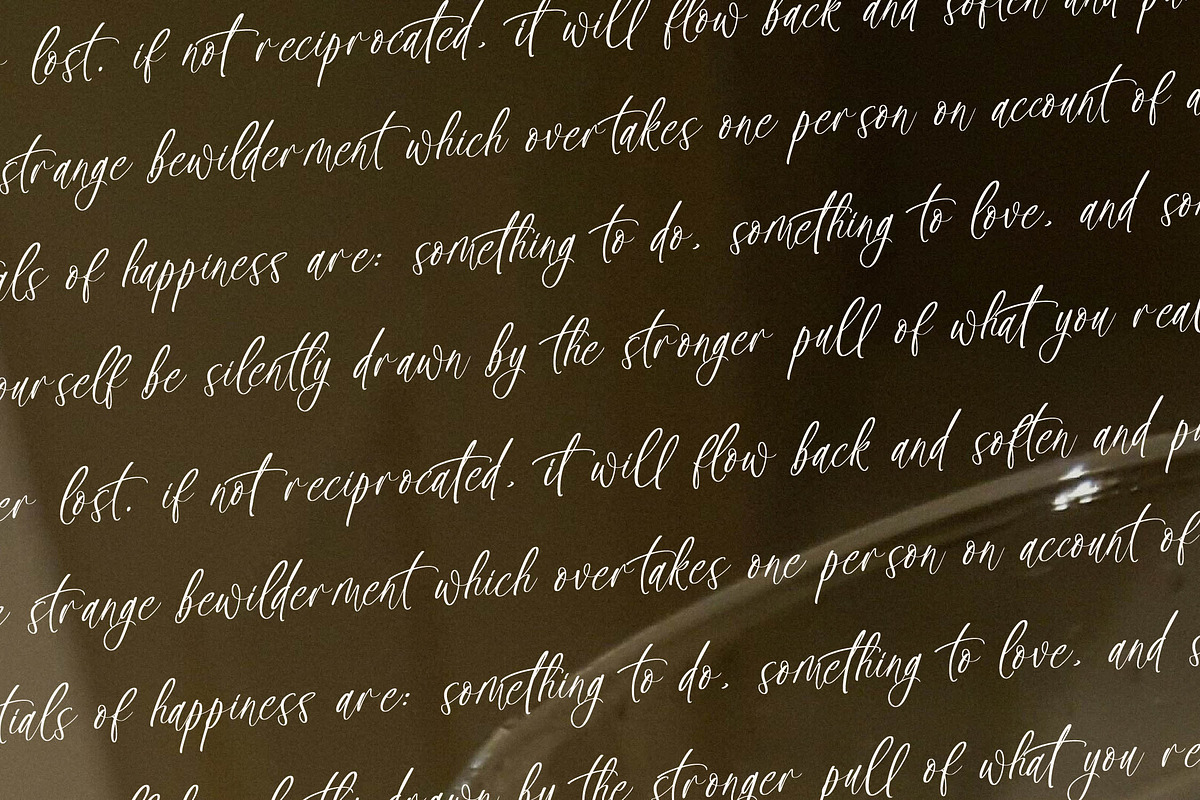 lost. if not reciprocated, it will flow back and soften and
strange bewilderment which overtakes one person on account of
of happiness are: something to do, something to love, and
yourself be silently drawn by the stronger pull of what you
lost. if not reciprocated, it will flow back and soften and
strange bewilderment which overtakes one person on account of
of happiness are: something to do, something to love, and
drawn by the stronger pull of what you